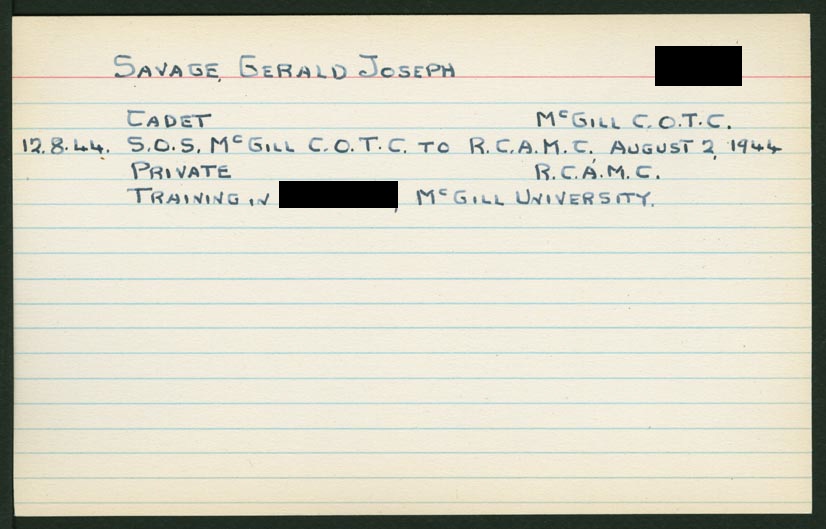 SAVAGE, GERALD JOSEPH
CADET McGILL C.O.T.C.
12.8.44. S.O.S. McGILL C.O.T.C. TO R.C.A.M.C. AUGUST 2, 1944
PRIVATE R.C.A.M.C.
TRAINING IN , McGILL UNIVERSITY.